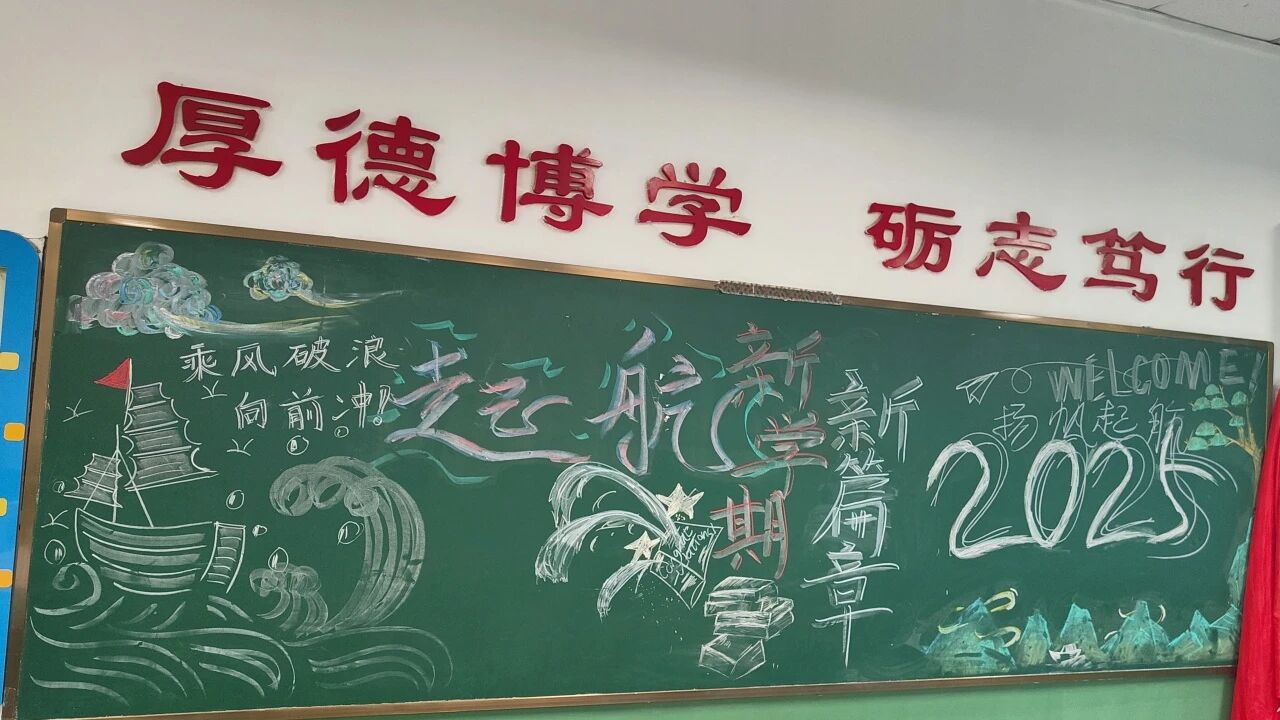 厚德博学 砺志笃行
乘风破浪
向前冲!
起航
新学期
新篇章
WELCOME!
扬帆起航
2025